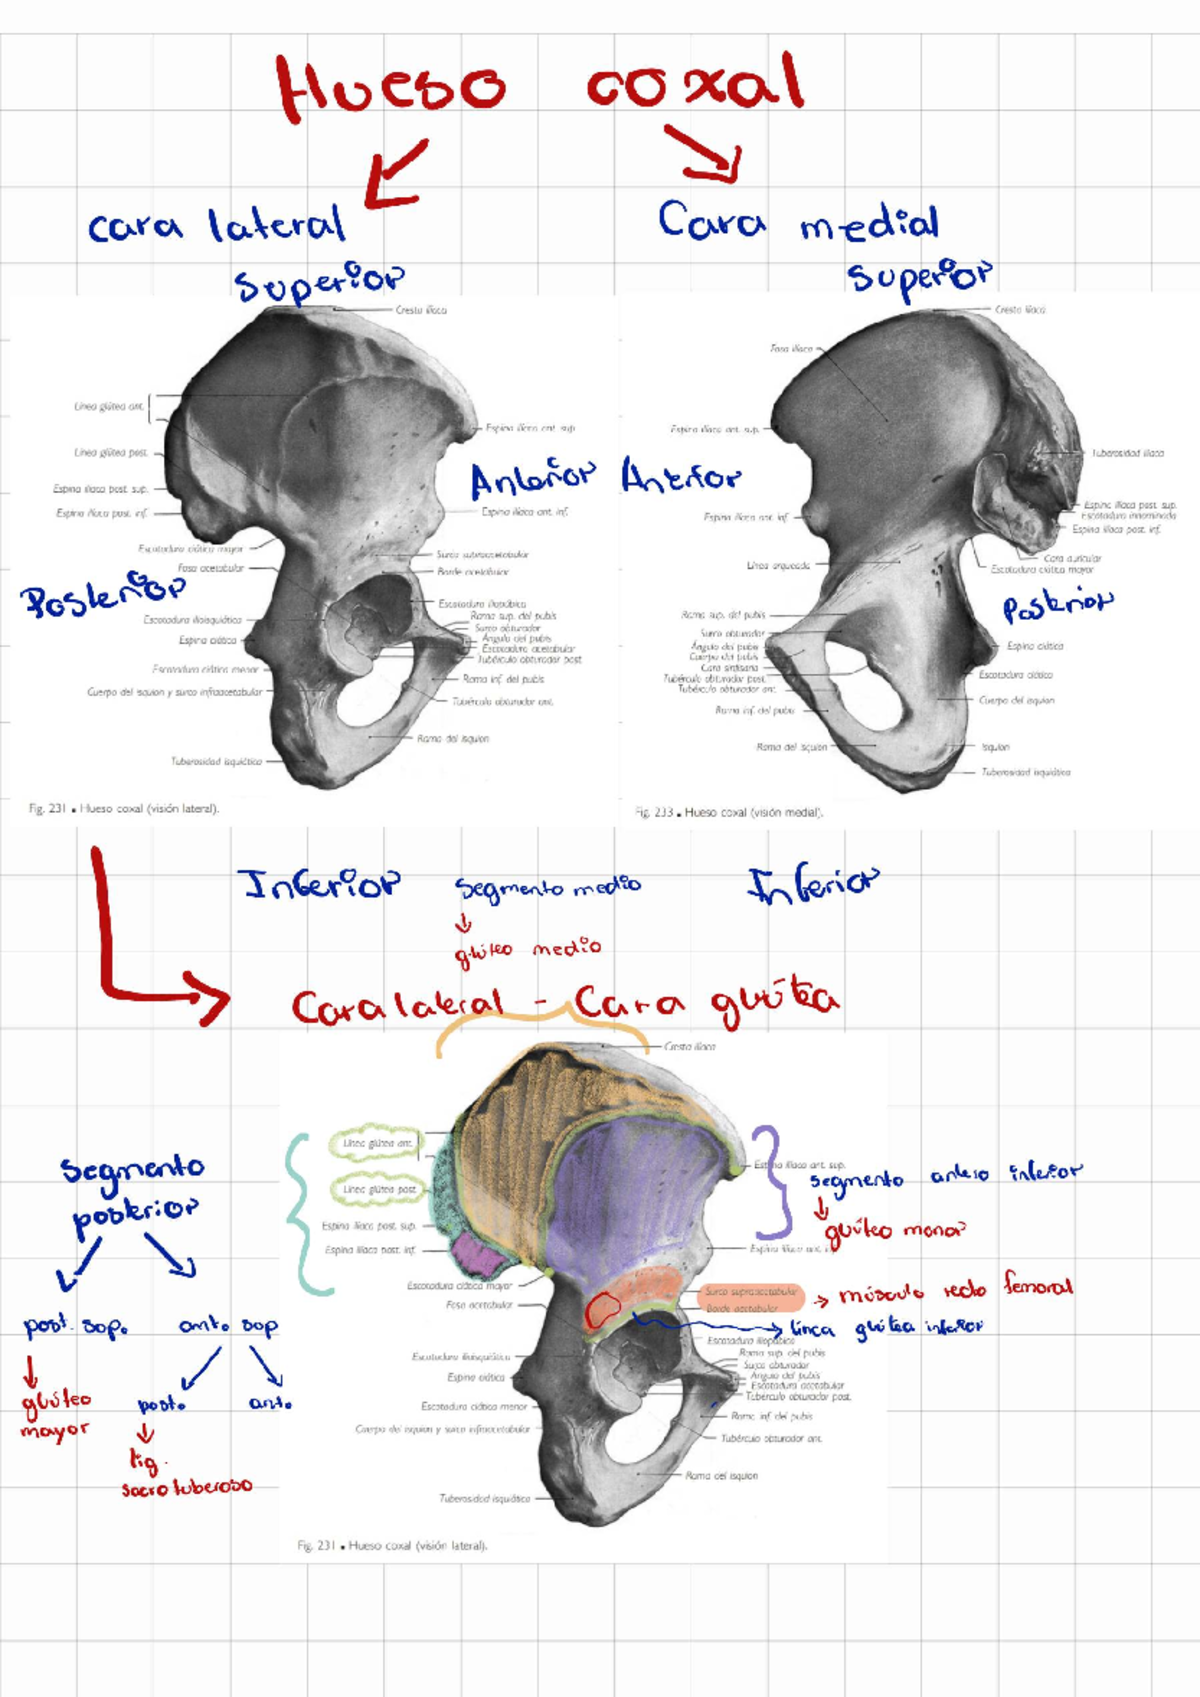 Hueso coxal
cara lateral
Cara medial
Superior
Superior
Cresta ilíaca
Línea glútea ant.
Línea glútea post.
Espina ilíaca post. sup.
Espina ilíaca post. inf.
Escotadura ciática mayor
Fosa acetabular
Escotadura ilioisquiática
Espina ciática
Escotadura ciática menor
Cuerpo del isquion y surco infraacetabular
Tuberosidad isquiática
Espina ilíaca ant. sup.
Anterior
Espina ilíaca ant. inf.
Surco supraacetabular
Borde acetabular
Escotadura iliopúbica
Rama sup. del pubis
Surco obturador
Ángulo del pubis
Escotadura acetabular
Tubérculo obturador post.
Rama inf. del pubis
Tubérculo obturador ant.
Rama del isquion
Posterior
Fig. 231 ▪ Hueso coxal (visión lateral).
Cresta ilíaca
Fosa ilíaca
Espina ilíaca ant. sup.
Anterior
Espina ilíaca ant. inf.
Línea arqueada
Rama sup. del pubis
Surco obturador
Ángulo del pubis
Cuerpo del pubis
Cara sinfisaria
Tubérculo obturador post.
Tubérculo obturador ant.
Rama inf. del pubis
Rama del isquion
Tuberosidad ilíaca
Espina ilíaca post. sup.
Escotadura innominada
Espina ilíaca post. inf.
Cara auricular
Escotadura ciática mayor
Posterior
Espina ciática
Escotadura ciática
Cuerpo del isquion
Isquion
Tuberosidad isquiática
Fig. 233 ▪ Hueso coxal (visión medial).
Inferior
Segmento medio
glúteo medio
Inferior
Cara lateral - Cara glútea
Cresta ilíaca
Línea glútea ant.
Línea glútea post.
Espina ilíaca post. sup.
Espina ilíaca post. inf.
Escotadura ciática mayor
Fosa acetabular
Escotadura ilioisquiática
Espina ciática
Escotadura ciática menor
Cuerpo del isquion y surco infraacetabular
Tuberosidad isquiática
Espina ilíaca ant. sup.
Segmento antero inferior
glúteo menor
Espina ilíaca ant. inf.
Surco supraacetabular
Borde acetabular
músculo recto femoral
línea glútea inferior
Escotadura iliopúbica
Rama sup. del pubis
Surco obturador
Ángulo del pubis
Escotadura acetabular
Tubérculo obturador post.
Rama inf. del pubis
Tubérculo obturador ant.
Rama del isquion
Segmento
posterior
post. sup.
ant. sup
glúteo
mayor
post.
ant.
lig.
sacro tuberoso
Fig. 231 ▪ Hueso coxal (visión lateral).